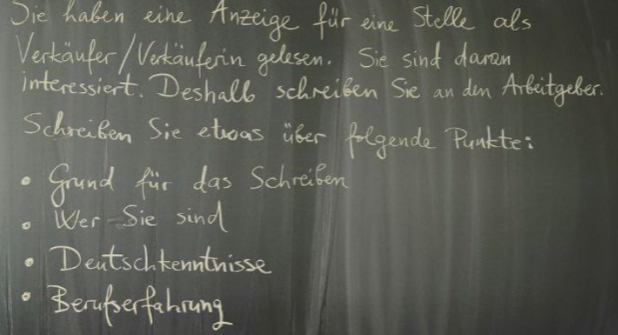 Sie haben eine Anzeige für eine Stelle als
Verkäufer/Verkäuferin gelesen. Sie sind daran
interessiert. Deshalb schreiben Sie an den Arbeitgeber.
Schreiben Sie etwas über folgende Punkte:
• Grund für das Schreiben
• Wer Sie sind
• Deutschkenntnisse
• Berufserfahrung